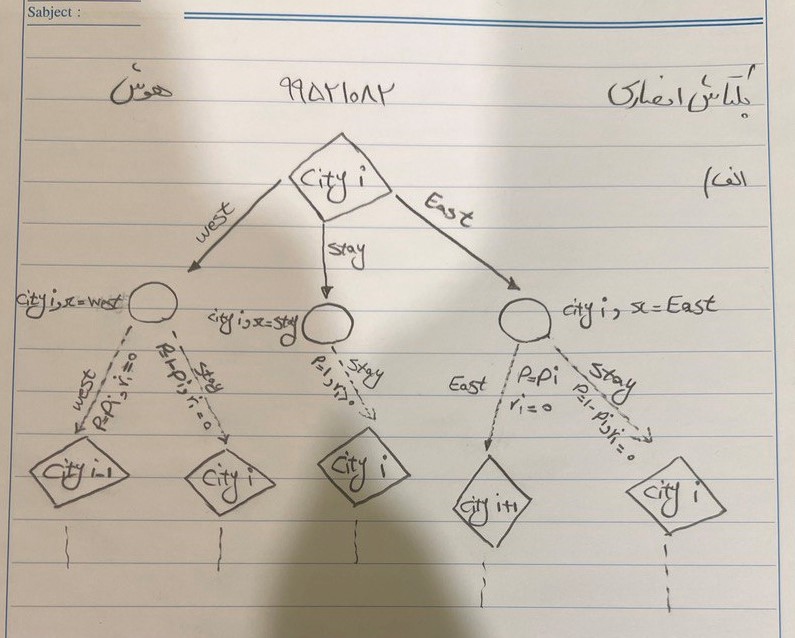 Sabject :
بکتاش انصاری ۹۹۵۲۱۰۸۲ هوش
الف)
City i
west
stay
East
city i, x=west
city i, x=stay
city i, x=East
west
P=Pi, ri=0
stay
P=1-Pi, ri=0
stay
P=1, ri>0
East
P=Pi
ri=0
stay
P=1-Pi, ri=0
City i-1
City i
City i
City i+1
City i